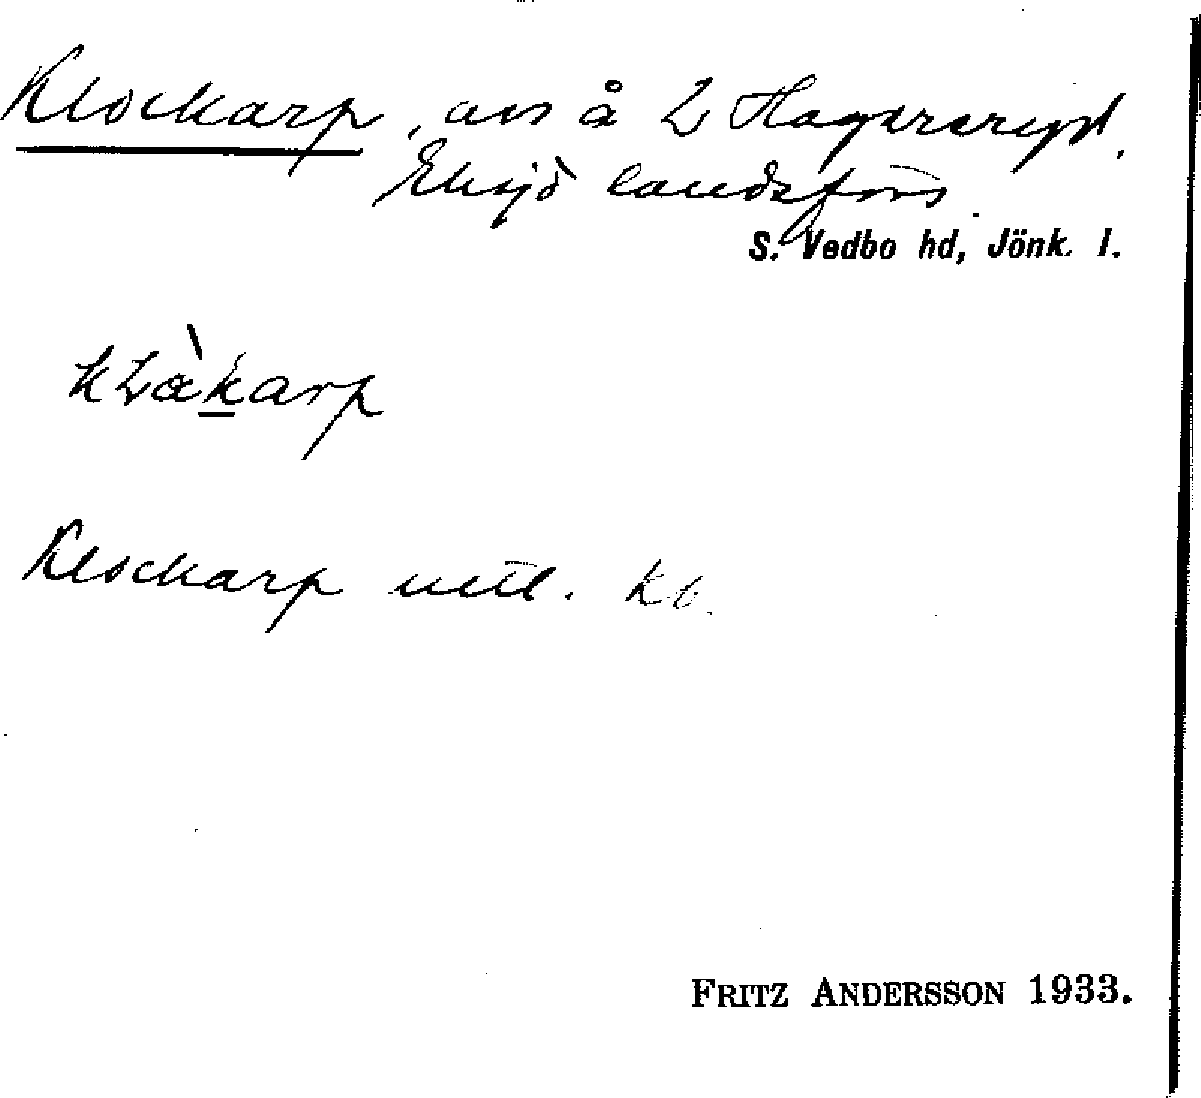 Klockarp, avs å 2 Hagersryd,
Eksjö landsförs
S. Vedbo hd, Jönk. l.
kLàkarp
Klockarp utt. kb.
FRITZ ANDERSSON 1933.